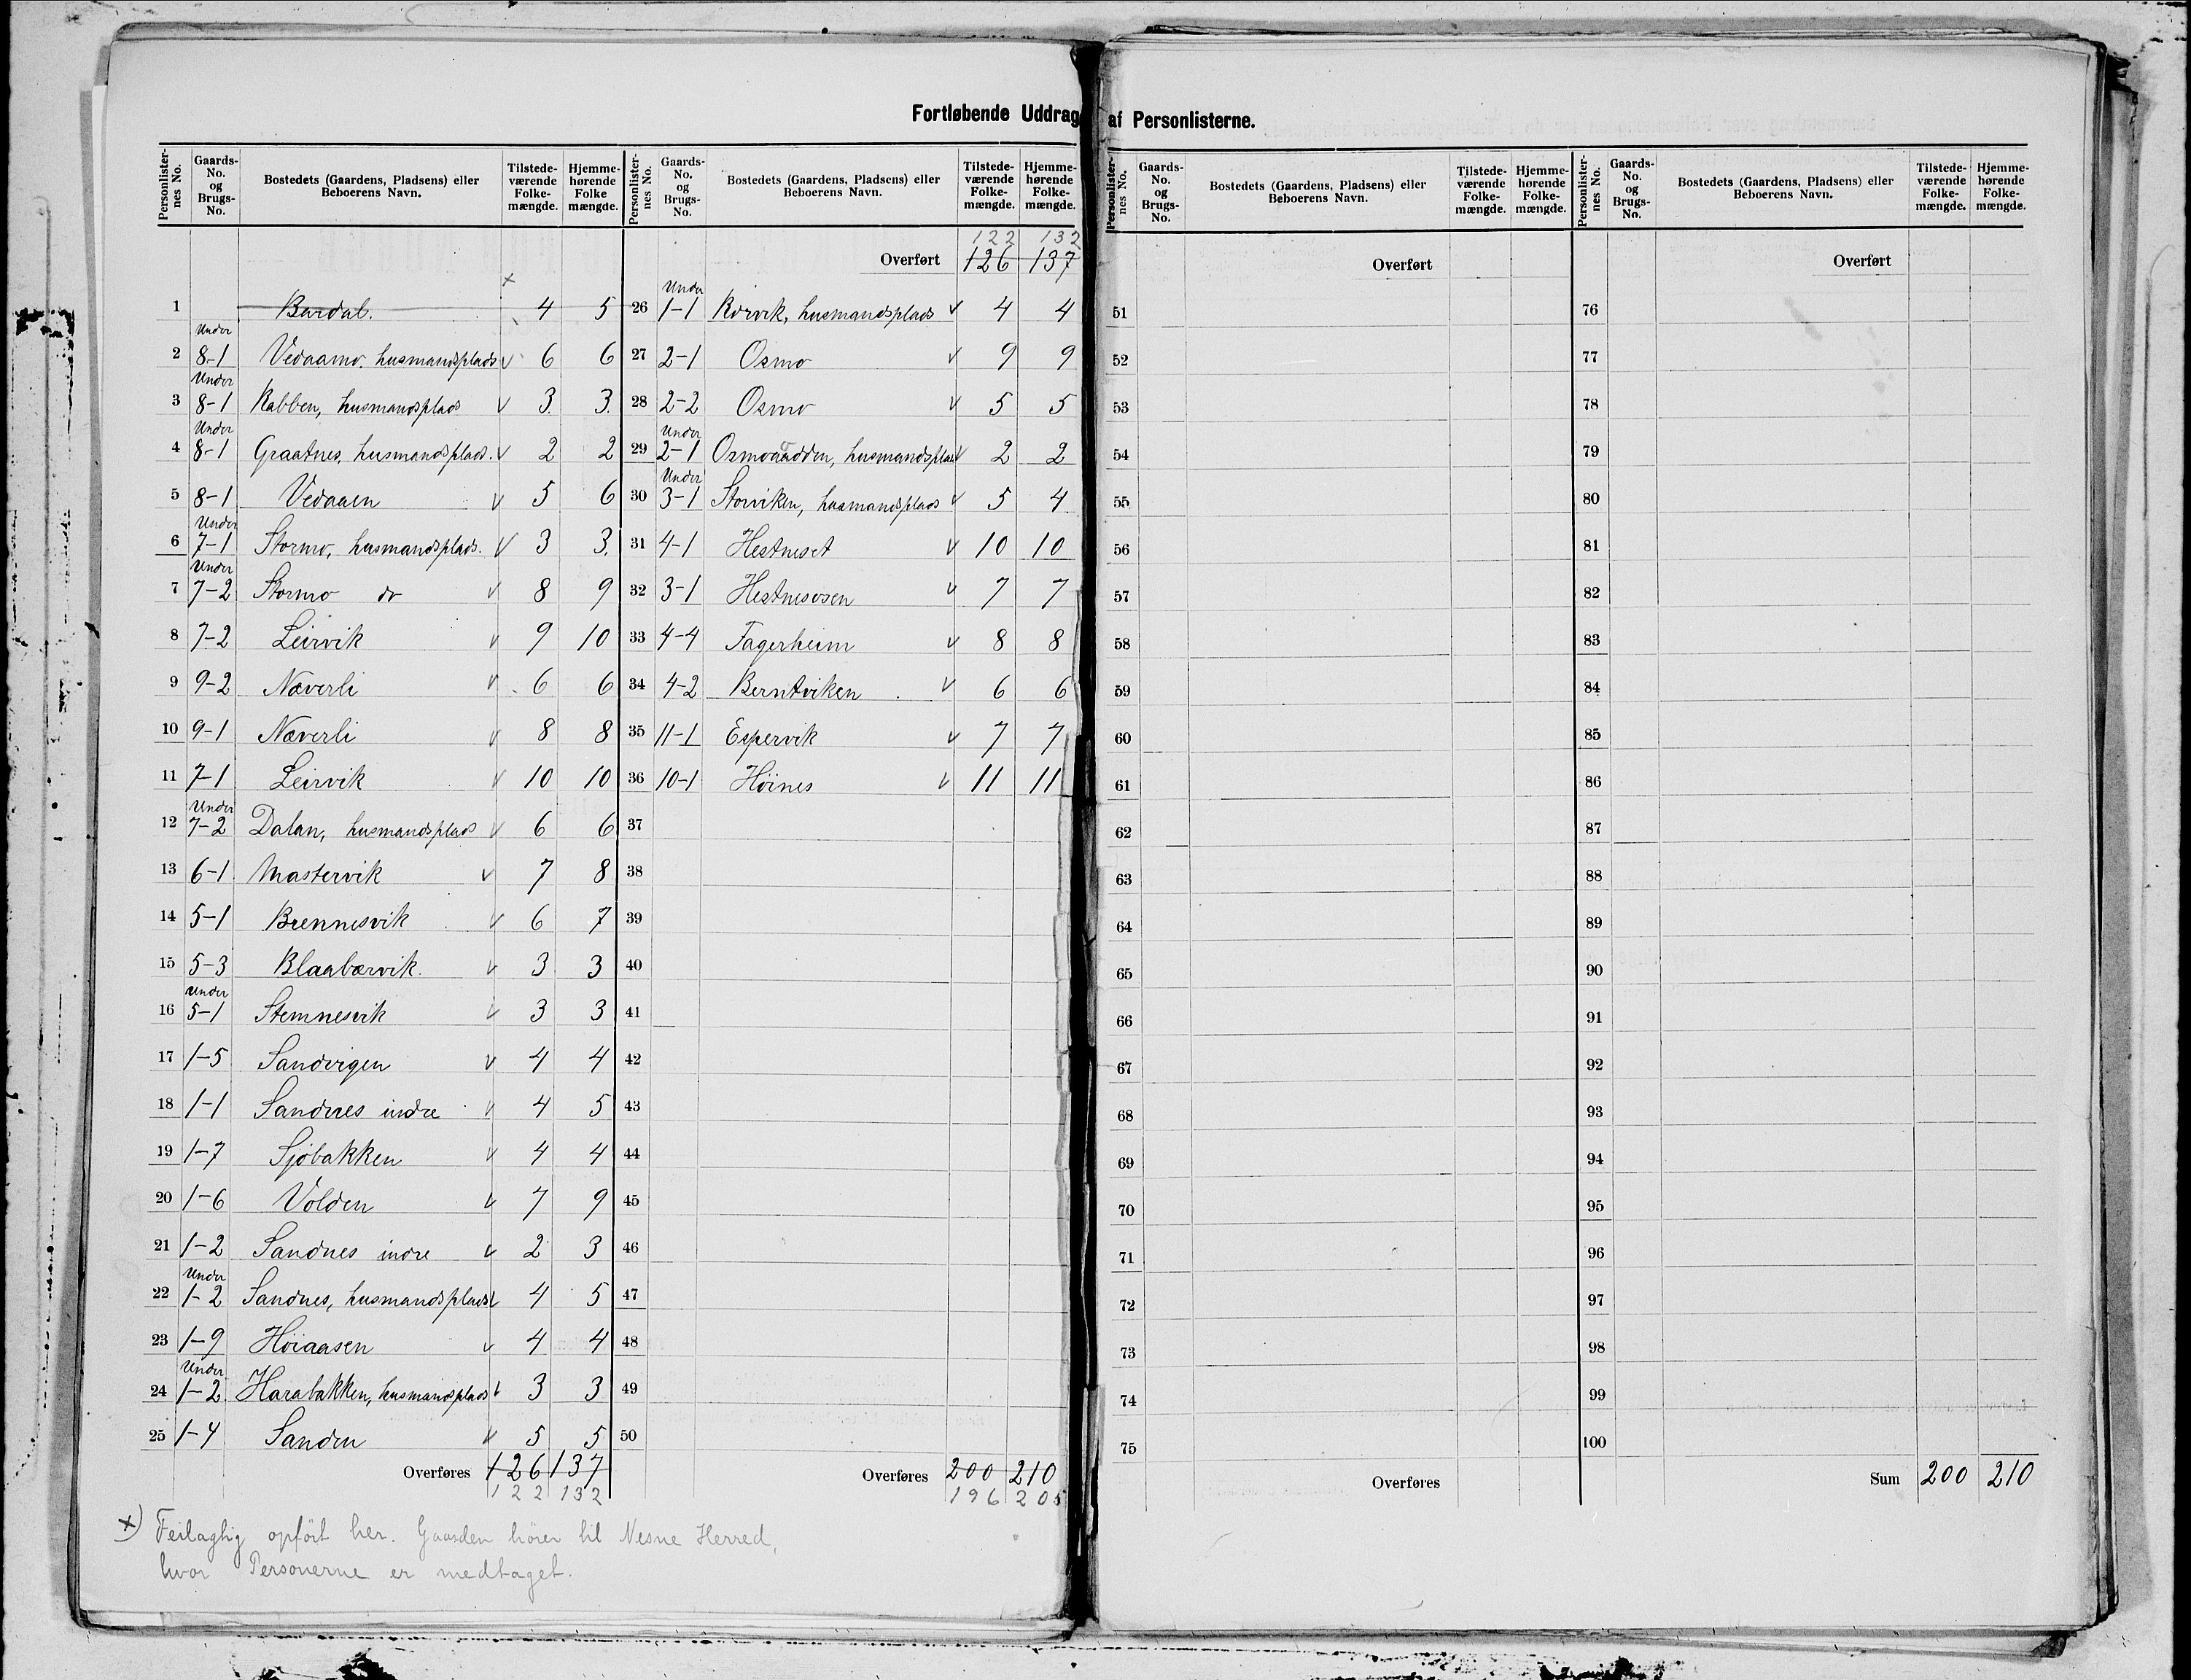 Fortløbende Uddrag af Personlisterne.
Personlister-nes No. Gaards-No. og Brugs-No. Bostedets (Gaardens, Pladsens) eller Beboerens Navn. Tilstede-værende Folke-mængde. Hjemme-hørende Folke mængde.
1 Bardal. × 4 5
2 Under 8-1 Vedaamo. husmandsplads v 6 6
3 Under 8-1 Rabben, husmandsplads v 3 3
4 Under 8-1 Graatnes, husmandsplads. v 2 2
5 8-1 Vedaaen v 5 6
6 Under 7-1 Stormo, husmandsplads. v 3 3
7 Under 7-2 Stormo do v 8 9
8 7-2 Leirvik v 9 10
9 9-2 Næverli v 6 6
10 9-1 Næverli v 8 8
11 7-1 Leirvik v 10 10
12 Under 7-2 Dalan, husmandsplads v 6 6
13 6-1 Mastervik v 7 8
14 5-1 Brennesvik v 6 7
15 5-3 Blaabærvik. v 3 3
16 Under 5-1 Stemnesvik v 3 3
17 1-5 Sandvigen v 4 4
18 1-1 Sandnes indre v 4 5
19 1-7 Sjøbakken v 4 4
20 1-6 Volden v 7 9
21 1-2 Sandnes indre v 2 3
22 Under 1-2 Sandnes, husmandsplads v 4 5
23 1-9 Høiaasen v 4 4
24 Under 1-2 Harabakken, husmandsplads v 3 3
25 1-4 Sanden v 5 5
Overføres 126 137
122 132
×) Feilagtig opført her. Gaarden hører til Nesne Herred,
hvor Personerne er medtaget.
Personlister-nes No. Gaards-No. og Brugs-No. Bostedets (Gaardens, Pladsens) eller Beboerens Navn. Tilstede-værende Folke-mængde. Hjemme-hørende Folke-mængde.
122 132
Overført 126 137
26 Under 1-1 Rørvik, husmandsplads v 4 4
27 2-1 Osmo v 9 9
28 2-2 Osmo v 5 5
29 Under 2-1 husmandsplads v 2 2
30 Under 3-1 Storviken, husmandsplads v 5 4
31 4-1 Hestneset v 10 10
32 3-1 Hestnesosen v 7 7
33 4-4 Fagerheim v 8 8
34 4-2 Berntviken v 6 6
35 11-1 Espervik v 7 7
36 10-1 Høines v 11 11
37
38
39
40
41
42
43
44
45
46
47
48
49
50
Overføres 200 210
196 205
Personlister-nes No. Gaards-No. og Brugs-No. Bostedets (Gaardens, Pladsens) eller Beboerens Navn. Tilstede-værende Folke-mængde. Hjemme-hørende Folke-mængde.
Overført
51
52
53
54
55
56
57
58
59
60
61
62
63
64
65
66
67
68
69
70
71
72
73
74
75
Overføres
Personlister-nes No. Gaards-No. og Brugs-No. Bostedets (Gaardens, Pladsens) eller Beboerens Navn. Tilstede-værende Folke-mængde. Hjemme-hørende Folke-mængde.
Overført
76
77
78
79
80
81
82
83
84
85
86
87
88
89
90
91
92
93
94
95
96
97
98
99
100
Sum 200 210